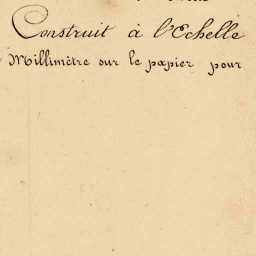 Construit à l'Echelle
Millimètre sur le papier pour